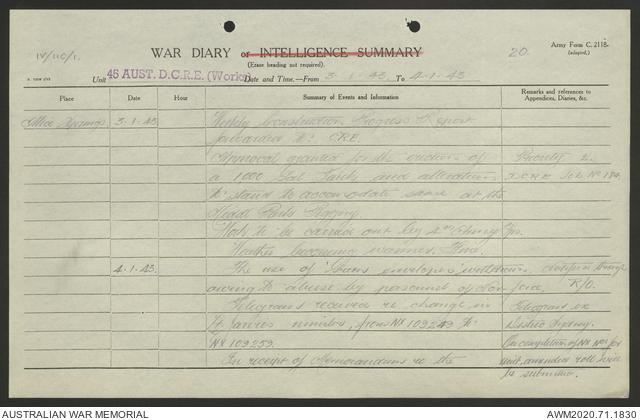 IV/110/1.
WAR DIARY or INTELLIGENCE SUMMARY
(Erase heading not required).
20.
Army Form C. 2118.
(adapted.)
Unit 45 AUST. D.C.R.E. (Works) Date and Time.—From 3-1-43 To 4-1-43
Place Date Hour Summary of Events and Information Remarks and references to Appendices, Diaries, &c.
Alice Springs 3-1-43 Weekly Construction Progress Report
forwarded to CRE.
Approval granted for the erection of Priority 2.
a 1000 Gal Tank and alterations DCRE Job No 184.
to stand to accomodate same at the
Head
Work to be carried out by
Weather becoming warmer. Fine.
4.1.43. The use of 'Green envelopes' withdrawn
owing to abuse by personnel of R/O.
Telegrams received re change in Telegram ex
Lt number, from NX 109249 to
NX 109259. On completion of for
In receipt of Memorandum re the amended roll
to submitted.
AUSTRALIAN WAR MEMORIAL
AWM2020.71.1830